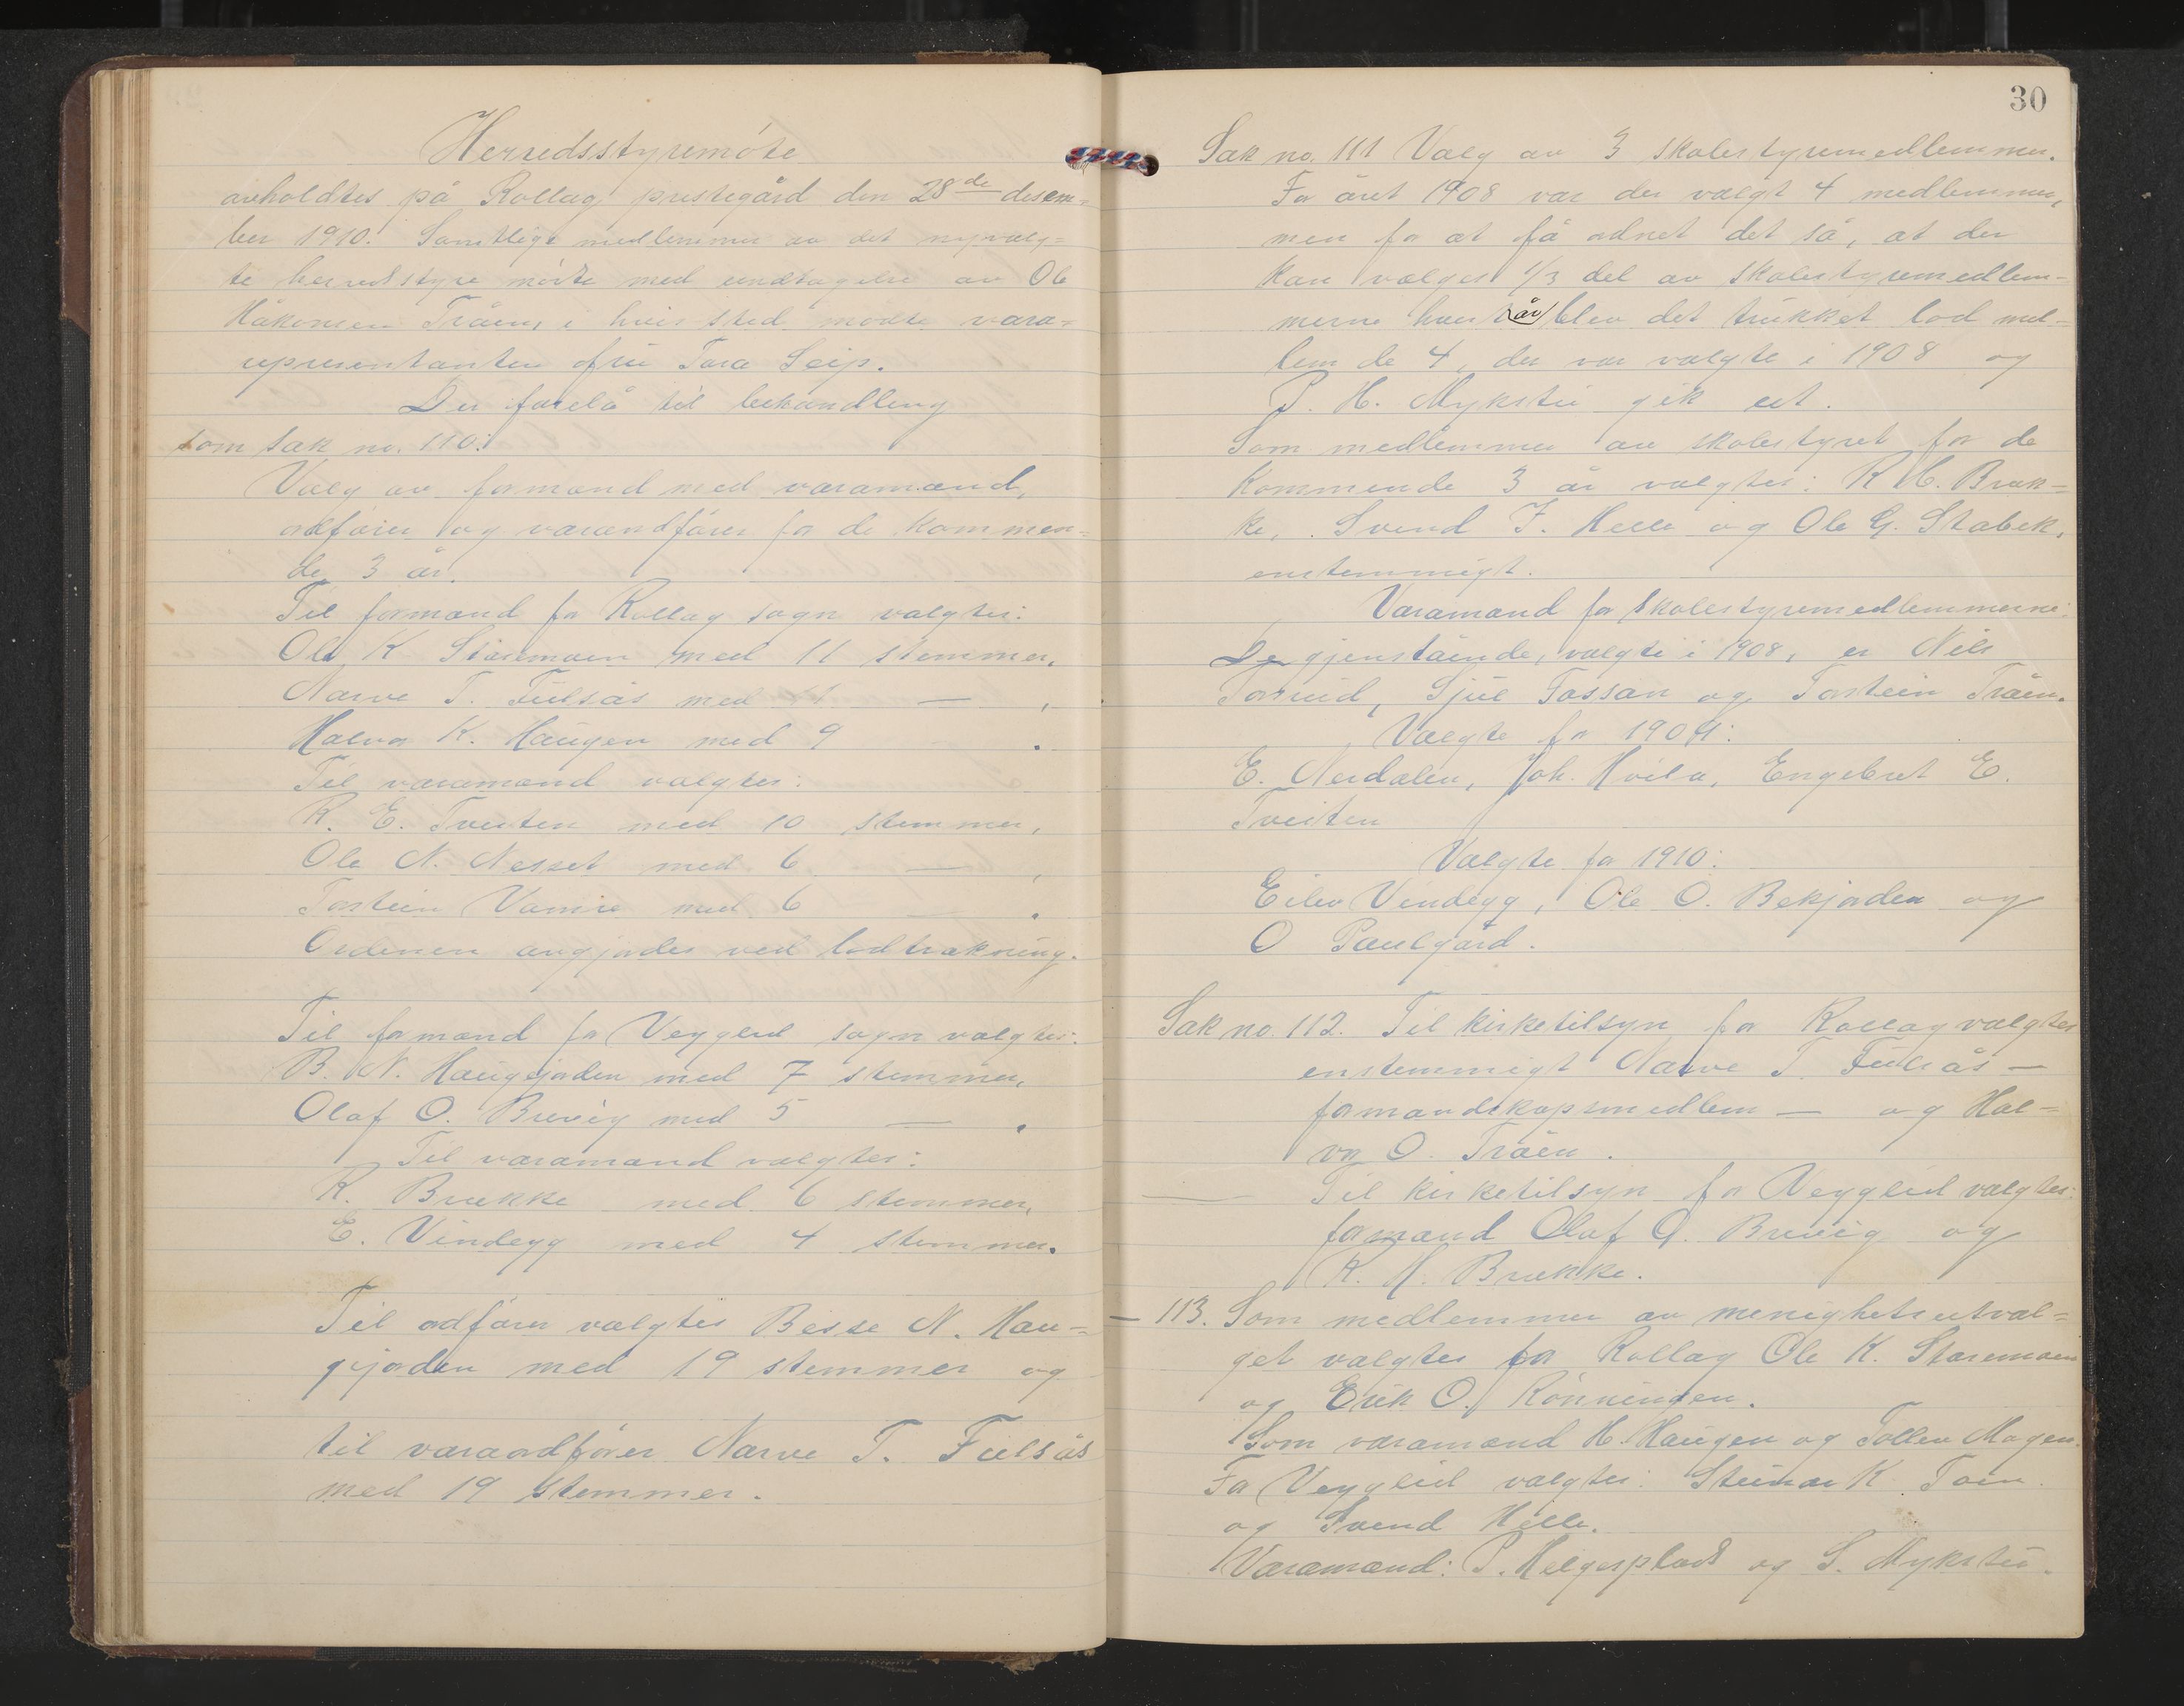 Herredsstyremöte
avholdtes på Rollag prestegård den 28de desem=
ber 1910. Samtlige medlemmer av det nyvalg=
te herredsstyre mödte med undtagelse av Ole
Håkonsen Tråen, i hvis sted mödte vara=
representanten fru Tora Seip.
Der forelå til behandling
som sak no. 110:
Valg av formænd med varamænd,
ordförer og varaordförer for de kommen=
de 3 år.
Til formænd for Rollag sogn valgtes:
Ole K Staremoen med 11 stemmer,
Narve T. Fulsås med 11 — ,
Halvor K. Haugen med 9 .
Til varamænd valgtes:
K. E. Tveiten med 10 stemmer,
Ole N. Nesset med 6 — ,
Torstein Vamre med 6 — .
Ordenen avgjordes ved lodtrækning.
Til formænd for Veggled sogn valgtes:
B. N. Haugejorden med 7 stemmer,
Olaf O. Brevig med 5 — .
Til varamænd valgtes:
K. Brække med 6 stemmer,
E. Vindegg med 4 stemmer.
Til ordförer valgtes Besse N. Hau=
gejorden med 19 stemmer og
til varaordförer Narve T. Fulsås
med 19 stemmer.
30
Sak no. 111 Valg av 3 skolestyremedlemmer.
For året 1908 var der valgt 4 medlemmer,
men for at få ordnet det så, at der
kan vælges 1/3 del av skolestyremedlem=
merne hvert år blev det trukket lod mel=
lem de 4, der var valgte i 1908 og
P. H. Mykstu gik ut.
Som medlemmer av skolestyret for de
kommende 3 år valgtes: K. H. Bræk=
ke, Svend F. Helle og Ole G. Stabek,
enstemmigt.
Varamænd for skolestyremedlemmerne:
De gjenstående, valgte i 1908, er Nils
Torrud, Sjul Fossan og Torstein Tråen.
Valgte for 1909:
E. Nerdalen, Joh. Hvila, Engebret E.
Tveiten
Valgte for 1910:
Eilev Vindegg, Ole O. Bekjorden og
O Paulgård.
Sak no. 112. Til kirketilsyn for Rollag valgtes
enstemmigt Narve T. Fulsås —
formandskapsmedlem — og Hal=
vor O. Tråen.
— Til kirketilsyn for Veggled valgtes:
formand Olaf O. Brevig og
K. H. Brække.
— 113. Som medlemmer av menighetsutval=
get valgtes for Rollag Ole K. Staremoen
og Erik O. Rönningen.
Som varamænd H. Haugen og Tollev Mogen.
For Veggled valgtes: Steinar K. Toen
og Svend Helle.
Varamænd: P. Helgesplads og S. Mykstu.